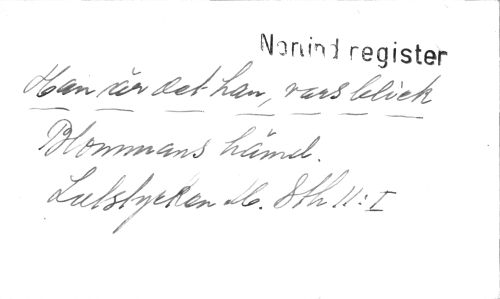 Nonind register
Han är det han, vars blick
Blommans hämd.
Lutstycken Ab. 8th 11: I